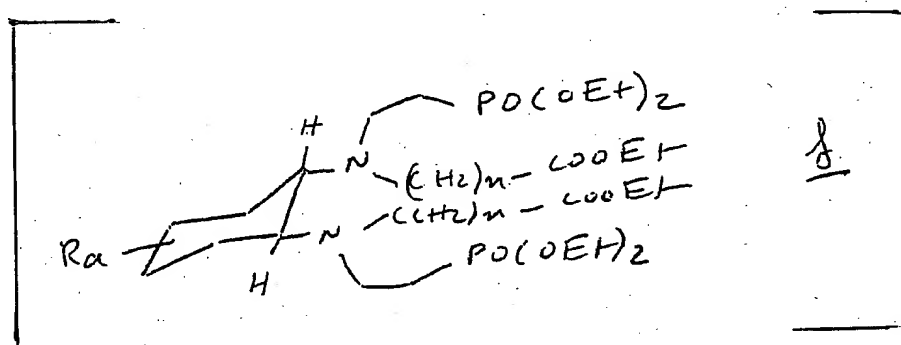 PO(OEt)2
H
N
(CH2)n - COOEt
N
(CH2)n - COOEt
Ra
PO(OEt)2
H